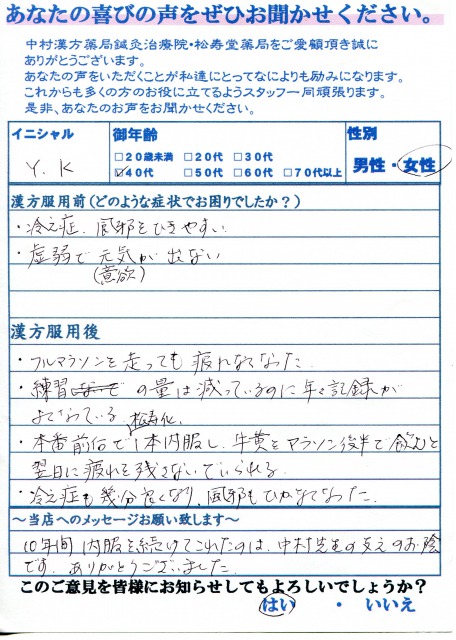 あなたの喜びの声をぜひお聞かせください。
中村漢方薬局鍼灸治療院・松寿堂薬局をご愛顧頂き誠に
ありがとうございます。
あなたの声をいただくことが私達にとってなによりも励みになります。
これからも多くの方のお役に立てるようスタッフ一同頑張ります。
是非、あなたのお声をお聞かせください。
イニシャル 御年齢 性別
Y. K
□20歳未満 □20代 □30代
☑40代 □50代 □60代 □70代以上
男性・女性
漢方服用前(どのような症状でお困りでしたか?)
・冷え症、風邪をひきやすい
・虚弱で元気が出ない
(意欲)
漢方服用後
・フルマラソンを走っても疲れなくなった
・練習の量は減っているのに年々記録が
よくなっている
松寿仙
・本番前后で1本内服し、牛黄をマラソン後半で飲むと
翌日に疲れを残さないでいられる
・冷え症も幾分良くなり、風邪もひかなくなった
~当店へのメッセージお願い致します~
10年間内服を続けてこれたのは、中村先生の支えのお陰
です。ありがとうございました。
このご意見を皆様にお知らせしてもよろしいでしょうか?
はい ・ いいえ